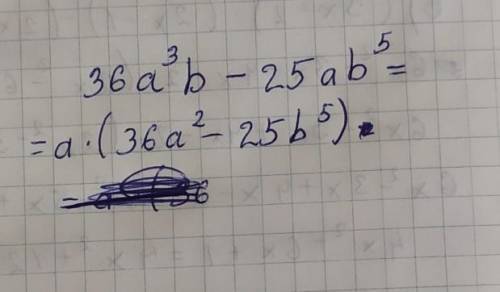 36a³b - 25ab⁵ =
= a·(36a² - 25b⁵)